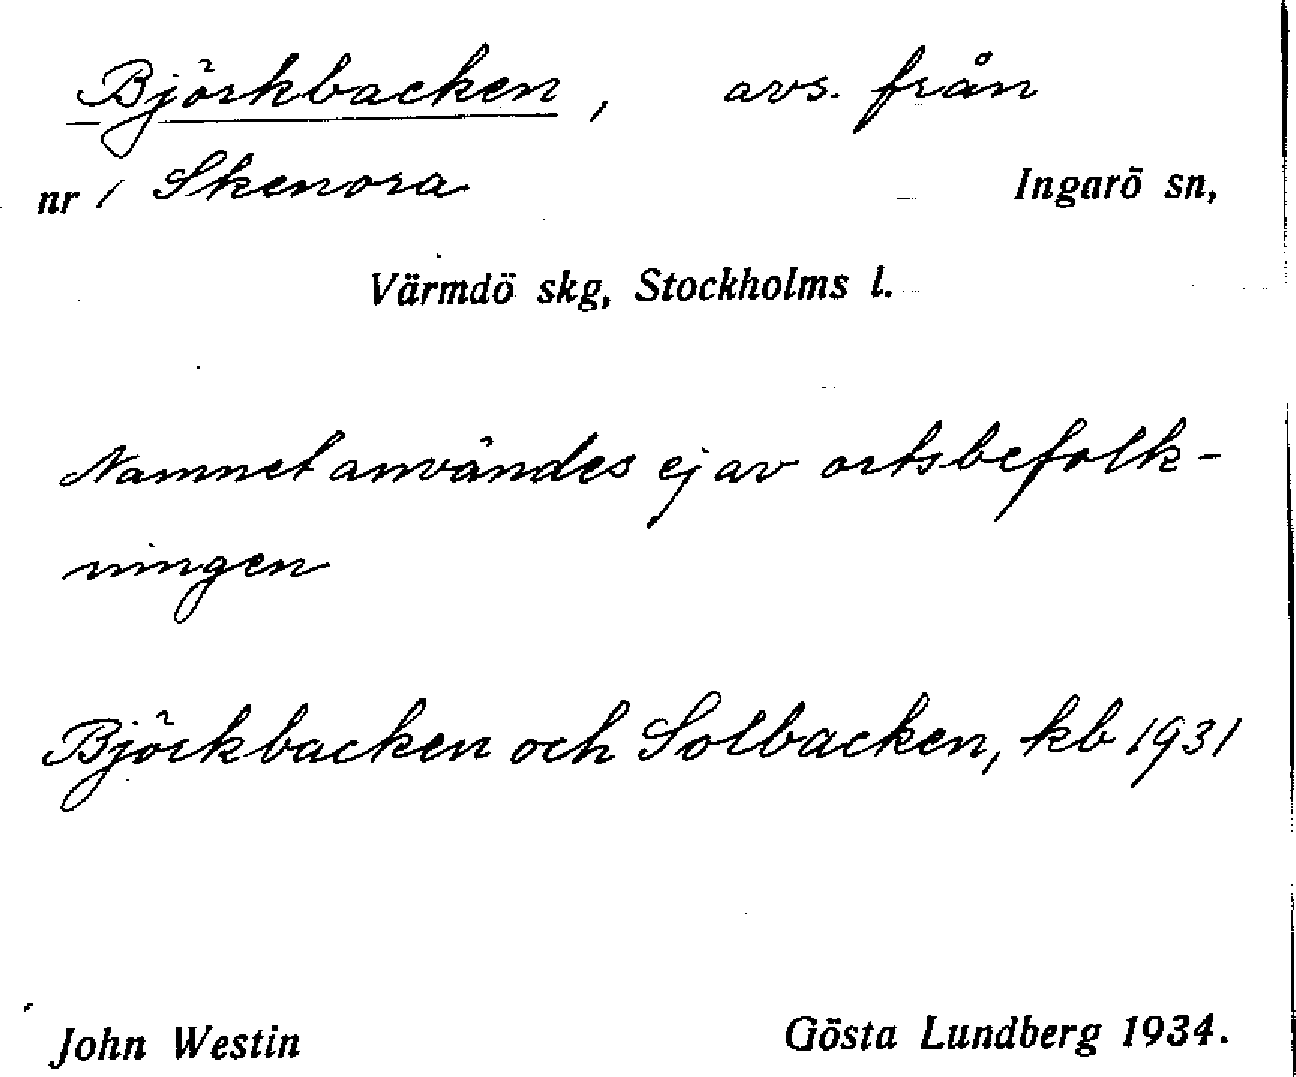 Björkbacken, avs. från
nr 1 Skenora Ingarö sn,
Värmdö skg, Stockholms l.
Namnet användes ej av ortsbefolk-
ningen
Björkbacken och Solbacken, kb 1931
John Westin Gösta Lundberg 1934.